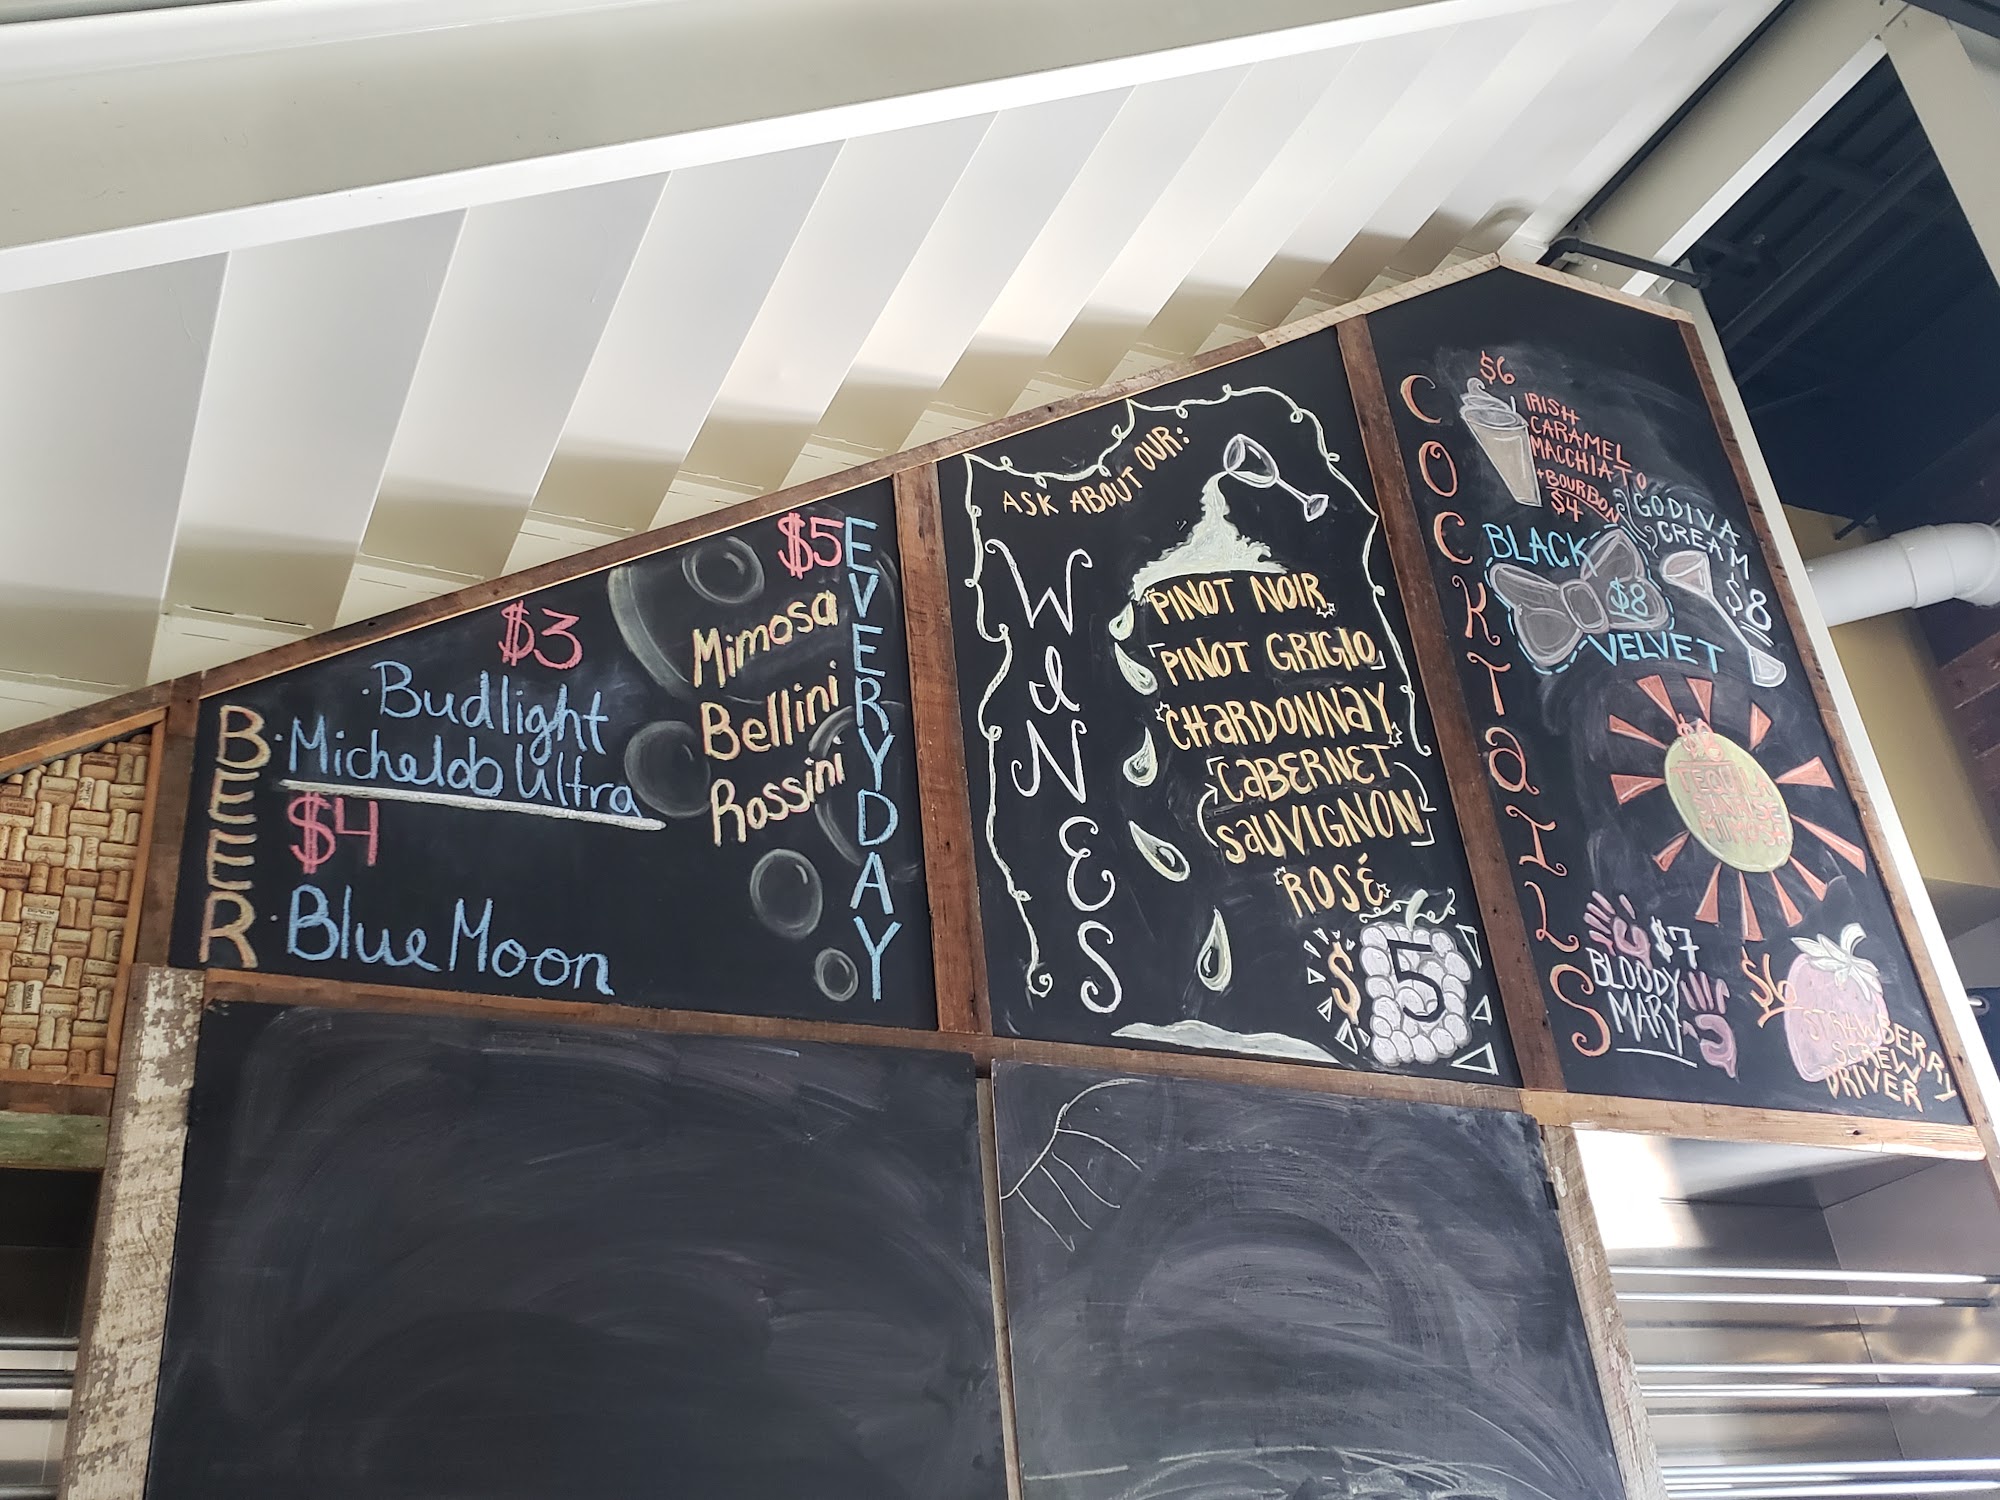 BEER
$3
·Budlight
·Micheldb Ultra
$4
·Blue Moon
$5
EVERYDAY
Mimosa
Bellini
Rossini
ASK ABOUT OUR:
WiNES
PINOT NOIR
PINOT GRIGIO
CHARDONNAY
CABERNET
SAUVIGNON
ROSÉ
$5
COCKTaILLS
$6
IRISH
CARAMEL
MACCHIATO
+BOURBON
$4
GODIVA
CREAM
$8
BLACK
$8
VELVET
$6
TEQUILA
SUNRISE
MIMOSA
$7
BLOODY
MARY
$6
STRAWBERRY
SCREW
DRIVER